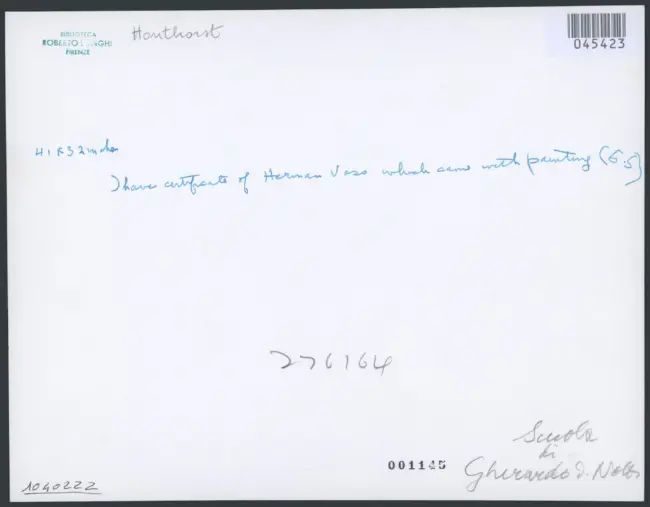 BIBLIOTECA
ROBERTO LONGHI
FIRENZE
Honthorst
045423
41 x 32 inches
I have certificate of Herman Voss which came with painting (G.S)
276164
Scuola
di
Gherardo d. Notti
001145
1040222